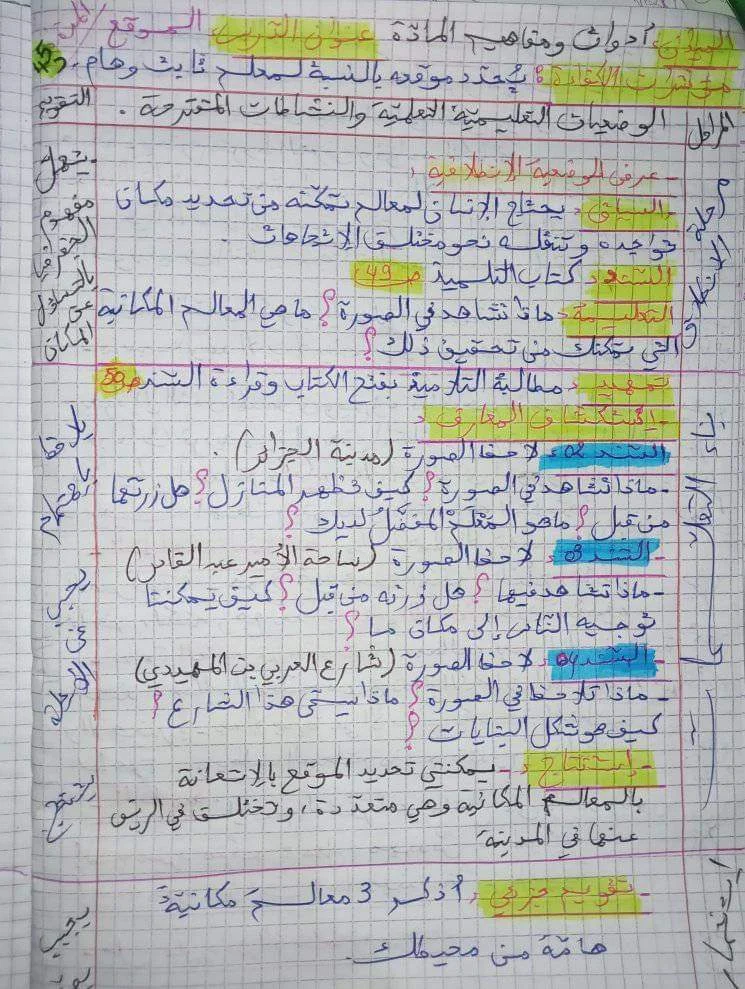 الميدان: أدوات ومفاهيم المادة عنوان الدرس: الموقع
مؤشرات الكفاءة: يُحدد موقعه بالنسبة لمعلم ثابت وهام.
المراحل
الوضعيات التعليمية التعلمية والنشاطات المقترحة.
التقويم
مرحلة الانطلاق
- عرض الوضعية الانطلاقية:
- السياق: يحتاج الإنسان لمعالم تمكنه من تحديد مكان
تواجده وتنقله نحو مختلف الاتجاهات.
السند: كتاب التلميذ ص 49
التعليمة: ماذا تشاهد في الصورة؟ ما هي المعالم المكانية
التي تمكنك من تحقيق ذلك؟
مفهوم
الجغرافيا
بالتساؤل
عن
المكان
تمهيد: مطالبة التلاميذ بفتح الكتاب وقراءة السند ص 50
- إكتشاف المعارف:
السند 02: لاحظ الصورة (مدينة الجزائر).
- ماذا تشاهد في الصورة؟ كيف تظهر المنازل؟ هل زرتها
من قبل؟ ما هو المَعْلَمُ المفضّل لديك؟
- السند 03: لاحظ الصورة (ساحة الأمير عبد القادر)
- ماذا تشاهد فيها؟ هل زرته من قبل؟ كيف يمكننا
توجيه الناس إلى مكان ما؟
- السند 04: لاحظ الصورة (شارع العربي بن المهيدي)
- ماذا تلاحظ في الصورة؟ ماذا يسمى هذا الشارع؟
كيف هو شكل البنايات؟
يلاحظ
يجيب
عن
الأسئلة
- إستنتاج: - يمكنني تحديد الموقع بالإستعانة
بالمعالم المكانية وهي متعدّدة، وتختلف في الريف
عنها في المدينة.
يستنتج
- تقويم جزئي: أذكر 3 معالم مكانية
هامّة من محيطك.
يجيب